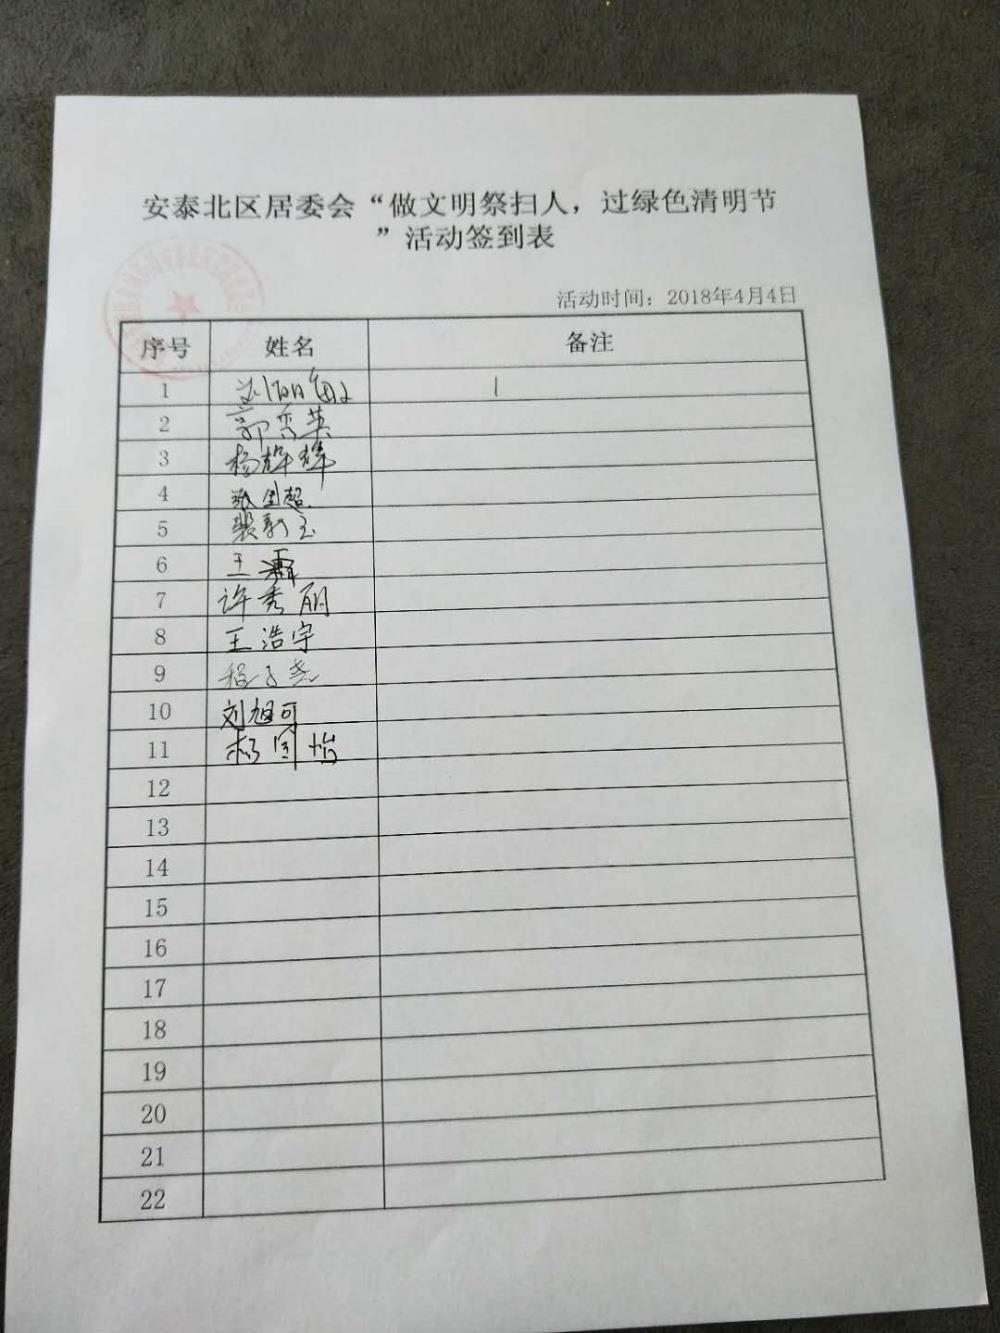 安泰北区居委会“做文明祭扫人，过绿色清明节
”活动签到表
活动时间：2018年4月4日
序号 姓名 备注
1 刘丽敏
2 郭秀英
3
4
5
6 王霞
7 许秀丽
8 王浩宇
9 程子尧
10 刘旭可
11 杨国怡
12
13
14
15
16
17
18
19
20
21
22